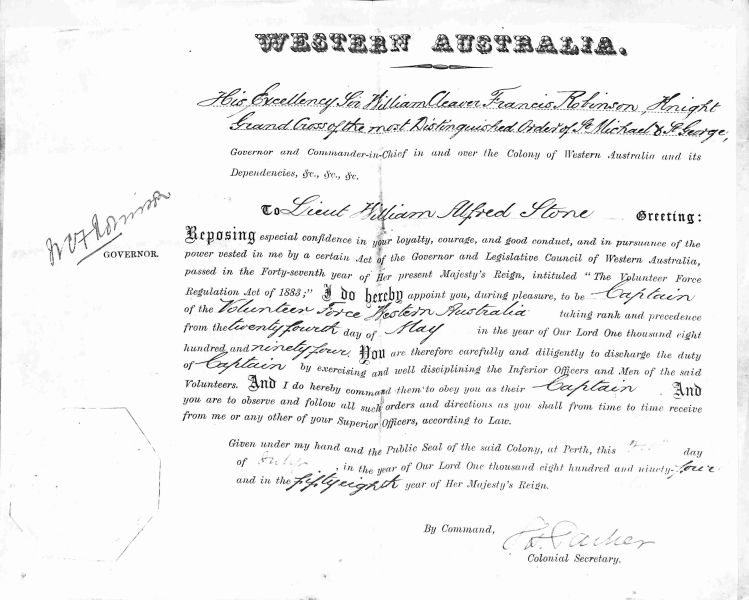 WESTERN AUSTRALIA.
His Excellency Sir William Cleaver Francis Robinson, Knight
Grand Cross of the most Distinguished Order of St Michael & St George,
Governor and Commander-in-Chief in and over the Colony of Western Australia and its
Dependencies, &c., &c., &c.
To Lieut William Alfred Stone Greeting:
W C F Robinson
GOVERNOR.
Reposing especial confidence in your loyalty, courage, and good conduct, and in pursuance of the
power vested in me by a certain Act of the Governor and Legislative Council of Western Australia,
passed in the Forty-seventh year of Her present Majesty's Reign, intituled "The Volunteer Force
Regulation Act of 1883;" I do hereby appoint you, during pleasure, to be Captain
of the Volunteer Force Western Australia taking rank and precedence
from the twenty fourth day of May in the year of Our Lord One thousand eight
hundred and ninety four. You are therefore carefully and diligently to discharge the duty
of Captain by exercising and well disciplining the Inferior Officers and Men of the said
Volunteers. And I do hereby command them to obey you as their Captain. And
you are to observe and follow all such orders and directions as you shall from time to time receive
from me or any other of your Superior Officers, according to Law.
Given under my hand and the Public Seal of the said Colony, at Perth, this day
of in the year of Our Lord One thousand eight hundred and ninety-four
and in the fifty eighth year of Her Majesty's Reign.
By Command,
Parker
Colonial Secretary.